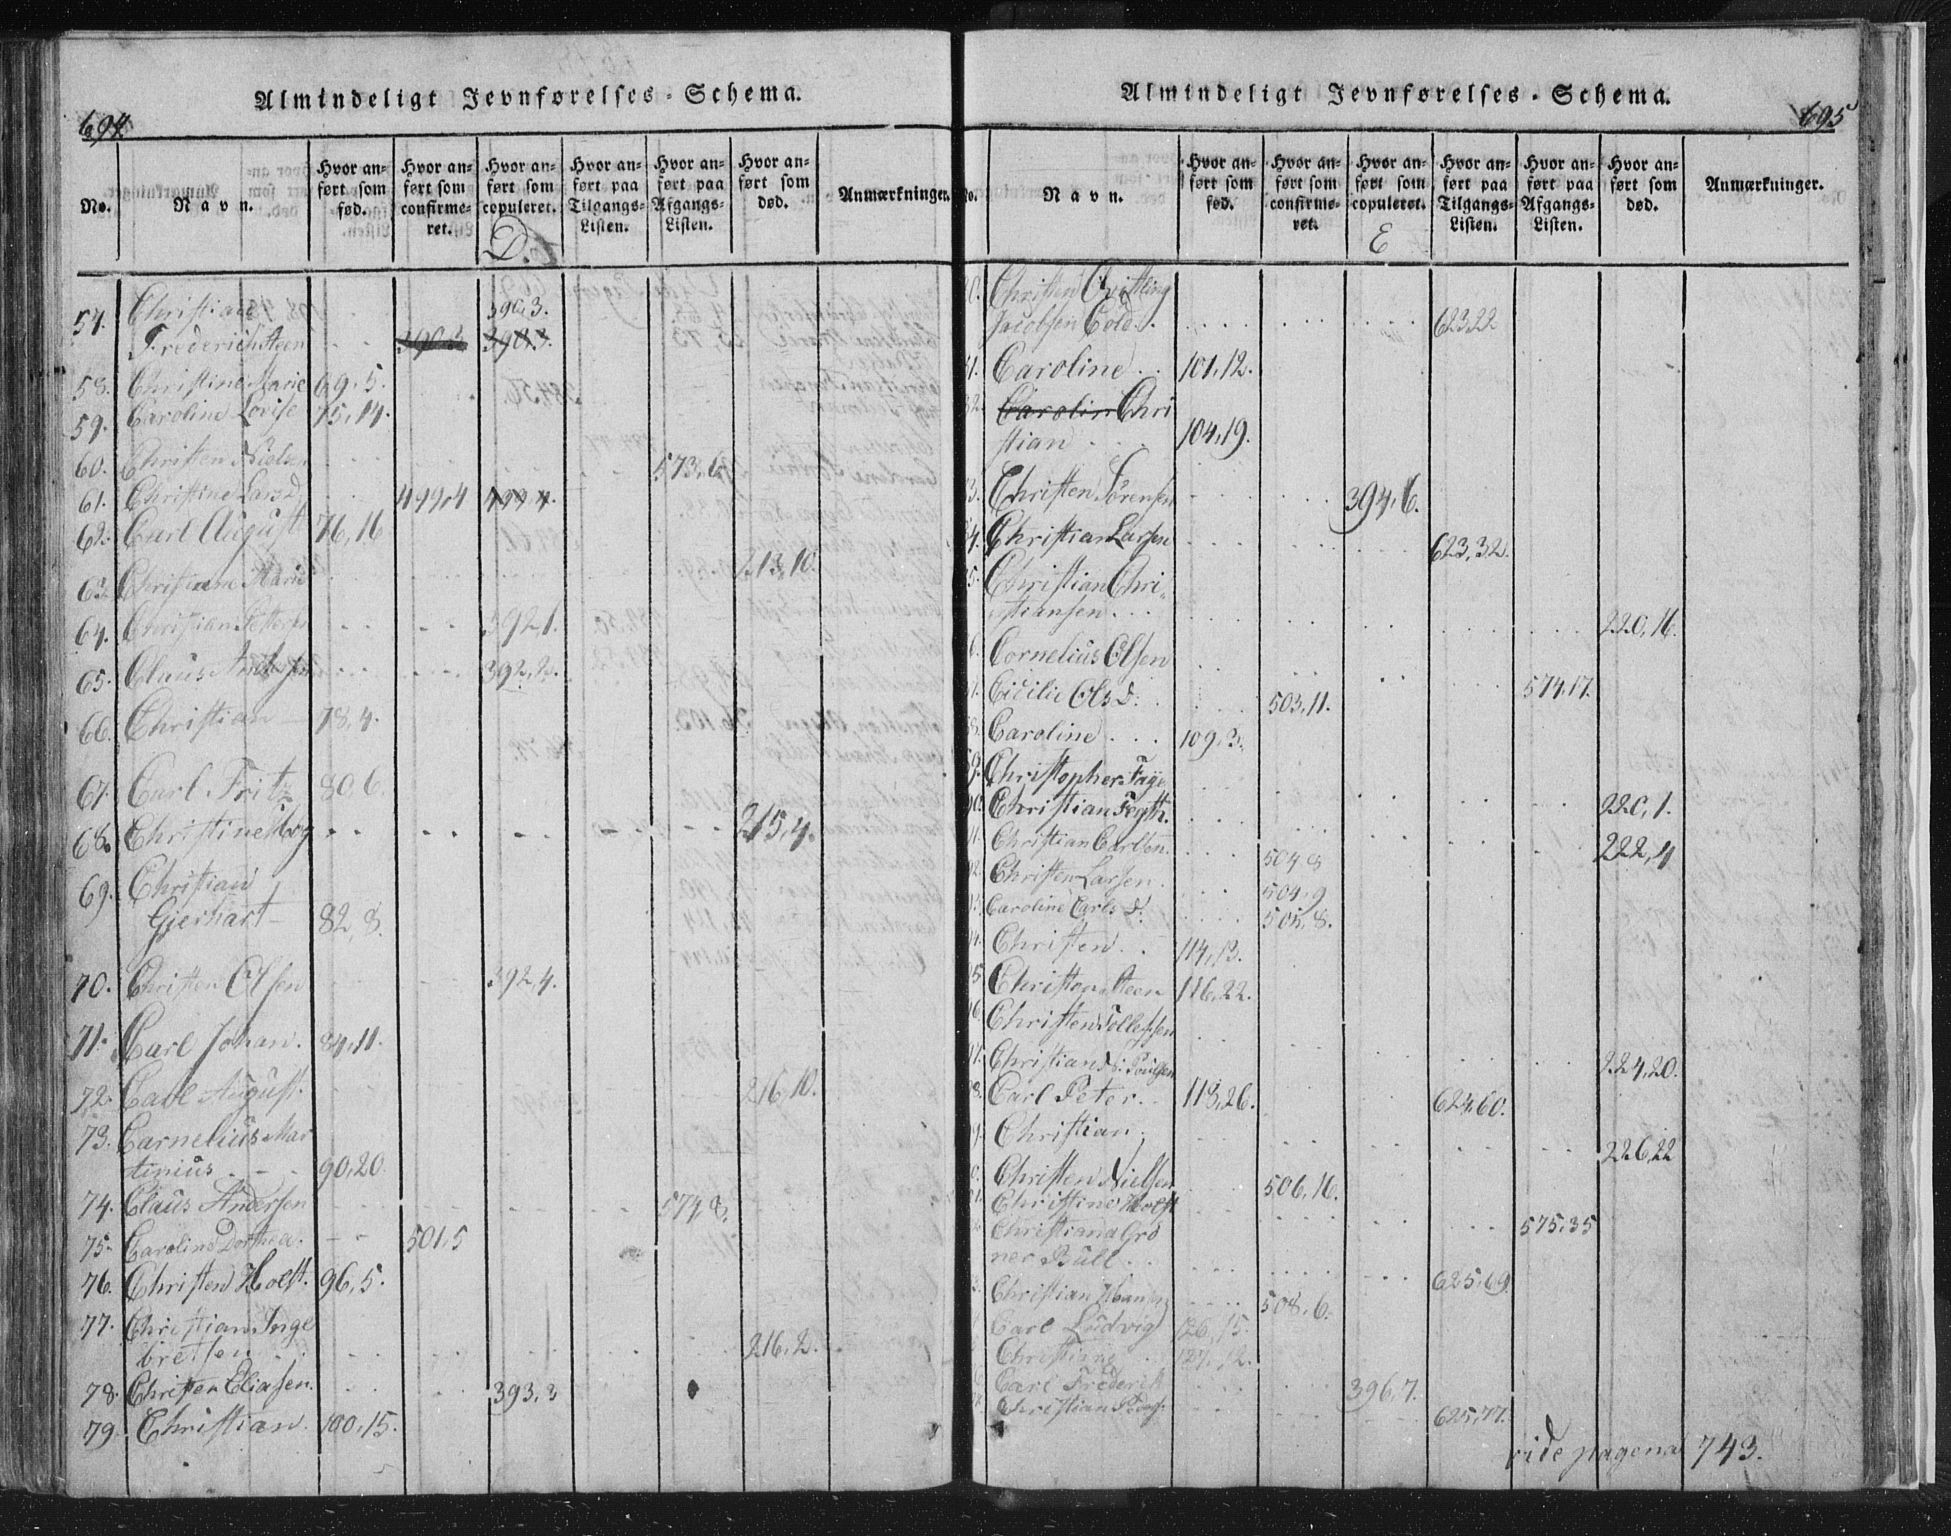 Almindeligt Jevnførelses-Schema.
694
No. Navn. Hvor anført som fød. Hvor anført som confirmeret. Hvor anført som copuleret. Hvor anført paa Tilgangs-Listen. Hvor anført paa Afgangs-Listen. Hvor anført som død. Anmærkninger.
D.
57. Christian 390,3.
Frederich Steen
58. Christine Marie 69,5.
59. Caroline Lovise 75,14.
60. Christen Nielsen 573,6.
61. Christine Lars D. 499,4 499 4.
62. Carl August 76,16
63. Christiane Marie 213,10.
64. Christian Petters 392,1.
65. Claus Andersen 392,2.
66. Christian 78,4.
67. Carl Fritz 80,6.
68. Christine 215,4.
69. Christian
Gierhart 82,8.
70. Christen Olsen 392,4.
71. Carl Johan. 84,11.
72. Carl August. 216,10.
73. Carnelius Mar
tinius 90,20.
74. Claus Andersen 574,8.
75. Caroline Dorthea. 501,5
76. Christen Holst. 96,5.
77. Christian Inge
bretsen 216,2.
78. Christen Eliasen. 393,3
79. Christian. 100,15.
Almindeligt Jevnførelses-Schema.
695
No. Navn. Hvor anført som fød. Hvor anført som confirmeret. Hvor anført som copuleret. Hvor anført paa Tilgangs-Listen. Hvor anført paa Afgangs-Listen. Hvor anført som død. Anmærkninger.
E
0. Christen
Jacobsen Cold. 623,22
1. Caroline 101,12.
2. Carolin Chri
stian 104,19.
3. Christen Sørensen 394,6.
4. Christian Larsen 623,32.
5. Christian Chri-
stiansen 220,16.
6. Cornelius Olsen 574,17.
Cicilie Ols D. 503,11.
Caroline 109,3.
9. Christopher Faye 220,1.
Christian 222,4
Christian Carlsen. 504,8
Christen Larsen. 504,9
Caroline Carls D. 505,8.
Christen 114,13.
5. Christian Steen 116,22.
6. Christen Tollefsen 224,20.
Christian N. Poulsen 624,60.
8. Carl Peter. 118,26.
Christian. 226,22
Christen Nielsen 506,16.
Christine Holst 575,35
Christiana Grö
ner Bull 625,69
Christian Hansen 508,6.
Carl Ludvig 126,15.
Christiane 127,12.
Carl Frederik 396,7.
Christian 625,77.
vide pagena 743.